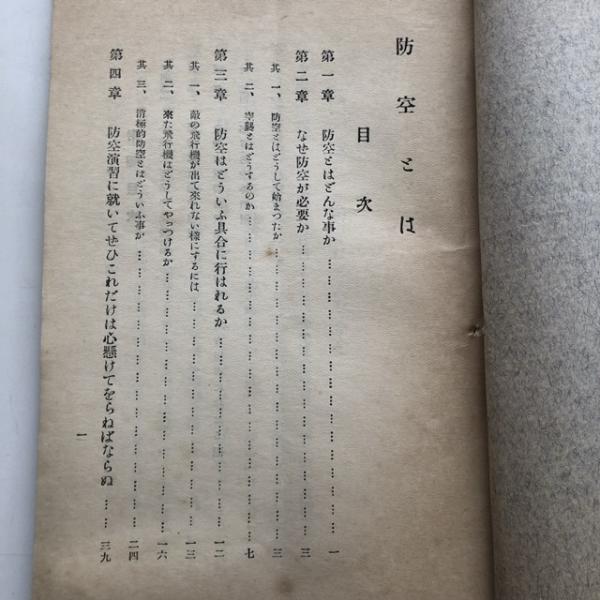 防空とは
目次
第一章　防空とはどんな事か……………………………一
第二章　なぜ防空が必要か……………………………三
其一、防空とはどうして始まつたか……………………………三
其二、空襲とはどうするのか……………………………七
第三章　防空はどういふ具合に行はれるか……………………一二
其一、敵の飛行機が出て來れない樣にするには……………………一三
其二、來た飛行機はどうしてやつつけるか……………………一六
其三、消極的防空とはどういふ事か……………………二四
第四章　防空演習に就いてぜひこれだけは心懸けてをらねばならぬ……三九
一